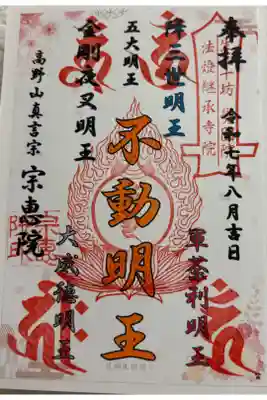 奉拝
令和七年八月吉日
十坊
法燈継承寺院
降三世明王
軍荼利明王
不動明王
五大明王
金剛夜叉明王
大威徳明王
高野山真言宗
宗恵院